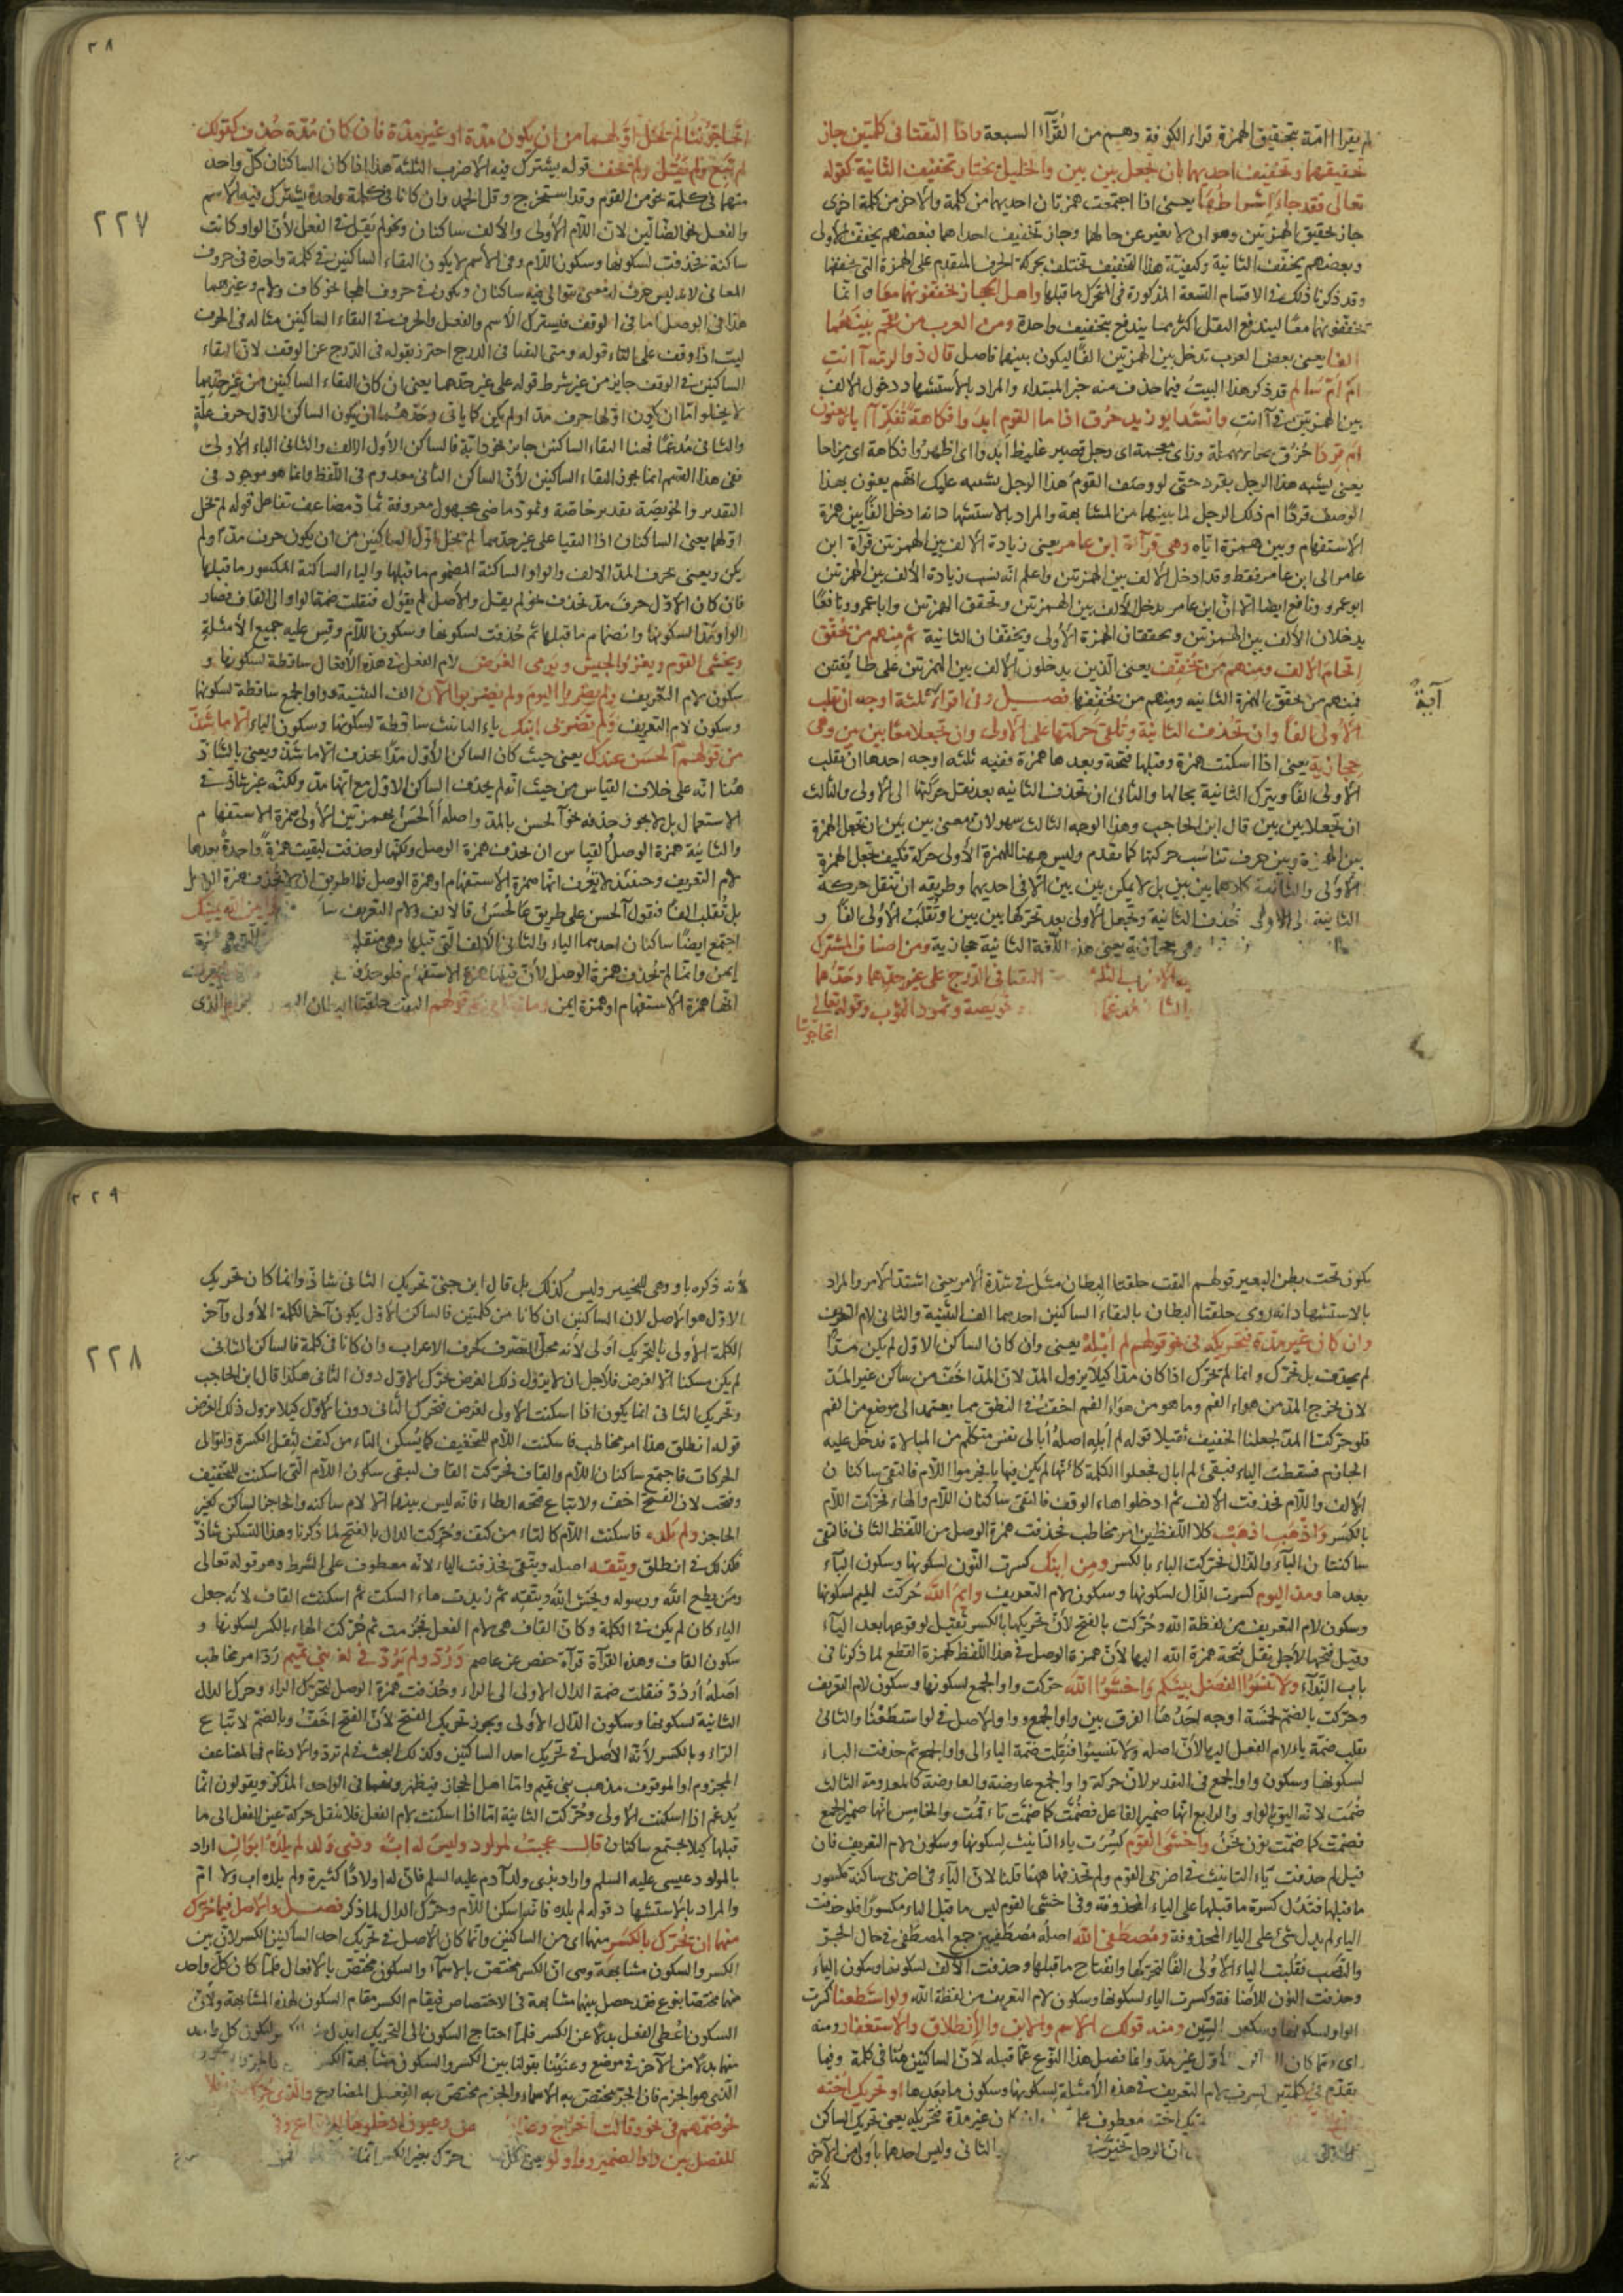 لم يقرا ائمة بتحقيق الهمزة قراء الكوفة وهم من القرّآء السبعة واذا التقتا فى كلمتين جاز
تخفيفهما وتخفيف احديهما بان تجعل بين بين والخليل يختار تخفيف الثانية كقوله
تعالى فقد جاء اشراطها يعنى اذا اجتمعت همزتان احديهما من كلمة والاخرى من كلمة اخرى
جاز تحقيق الهمزتين وهو ان لا تغير عن حالهما وجاز تخفيف احداهما فبعضهم يخفف الأولى
وبعضهم يخفف الثانية وكيفية هذا التخفيف تختلف بحركة الحرف المتقدم على الهمزة التى يخففها
وقد ذكرنا ذلك فى الاقسام التسعة المذكورة فى المتحرك ما قبلها واهل الحجاز يخففونهما معا وانما
يخففونهما معًا ليندفع الثقل اكثر مما يندفع بتخفيف واحدة ومن العرب من يقحم بينهما
الفا يعنى بعض العرب تدخل بين الهمزتين الفًا ليكون بينهما فاصل قال ذو الرمة آ انت
امْ امّ سالم قد ذكر هذا البيت فيما حذف منه خبر المبتداء والمراد بالاستشهاد دخول الالف
بين الهمزتين فى آ انت وانشد ابو زيد حزق اذا ما القوم ابدوا فكاهة تفكر آ اياه يعنون
ام قردا حزق بحاء مهملة وزاى معجمة اى رجل قصير غليظ ابدوا اى اظهروا فكاهة اى مزاحا
يعنى يشبه هذا الرجل بقرد حتى لو وصف القوم هذا الرجل يشتبه عليك انهم يعنون بهذا
الوصف قردًا ام ذلك الرجل لما بينهما من المشابهة والمراد بالاستشهاد انه ادخل الفًا بين همزة
الاستفهام وبين همزة اياه وهى قرآءة ابن عامر يعنى زيادة الالف بين الهمزتين قرآة ابن
عامر الى ابن عامر فقط وقد ادخل الالف بين الهمزتين واعلم انه نسب زيادة الألف بين الهمزتين
ابو عمرو ونافع ايضا الا ان ابن عامر يدخل الألف بين الهمزتين وتحقق الهمزتين وابا عمرو ونافعا
يدخلان الألف بين الهمزتين ويحققان الهمزة الأولى ويخففان الثانية ثم منهم من يحقق
اقحام الالف ومنهم من يخفف يعنى الذين يدخلون الالف بين الهمزتين على طائفتين
فمنهم من يحقق الهمزة الثانيه ومنهم من يخففها فصل وفى اقرأ آية ثلثة اوجه ان تقلب
آية
الأولى الفًا وان تحذف الثانية وتلقى حركتها على الاولى وان تجعلا معًا بين بين وهى
حجازية يعنى اذا اسكنت همزة وقبلها فتحة وبعدها همزة ففيه ثلثه اوجه احدها ان تقلب
الأولى الفًا ويترك الثانية بحالها والثانى ان تحذف الثانيه بعد نقل حركتها الى الأولى والثالث
ان تجعلا بين بين قال ابن الحاجب وهذا الوجه الثالث سهو لان معنى بين بين ان تجعل الهمزة
بين الهمزة وبين حرف تناسب حركتها كما تقدم وليس ههنا للهمزة الأولى حركة فكيف تجعل الهمزة
الأولى والثانية كلاهما بين بين بل لا يمكن بين بين الا فى احديهما وطريقه ان تنقل حركة
الثانية الى الأولى تحذف الثانية وتجعل الأولى بعد تحركها بين بين او تقلب الأولى الفًا و
وهى حجازية يعنى هذه اللغة الثانية حجازية ومن اصناف المشترك
التقتا فى الدرج على غير حدهما وحدهما
خويصة وتمود الثوب وقوله تعالى
اتحاجونا
٢٨
اتحاجوننا لم تخل اولهما من ان يكون مدة او غير مدة فان كان مدة حذف كقولك
لم تبع ولم يقل ولم تخف قوله يشترك فيه الاضرب الثلثة هذا اذا كان الساكنان كل واحد
منهما فى كلمة نحو من القوم وقد استخرج وقل الحمد وان كانا فى كلمة واحدة يشترك فيه الاسم
٢٢٧
والفعل نحو الضالّين لان اللام الأولى والألف ساكنان ونحو لم يقل فى الفعل لأن الواو كانت
ساكنة فحذفت لسكونها وسكون اللام وفى الاسم لا يكون التقاء الساكنين فى كلمة واحدة فى حروف
المعانى لانه ليس حرف له معنى يتوالى فيه ساكنان ويكون فى حروف الهجا نحو كاف ولام وغيرهما
هذا فى الوصل اما فى الوقف فيشترك الاسم والفعل والحرف فى التقاء الساكنين مثاله فى الحرف
ليت اذا وقف على التاء قوله ومتى التقيا فى الدرج احترز بقوله فى الدرج عن الوقف لان التقاء
الساكنين فى الوقف جايز من غير شرط قوله على غير حدهما يعنى ان كان التقاء الساكنين من غير حدهما
لا يخلوا اما ان يكون اولهما حرف مد او لم يكن كما ياتى وحدّهما ان يكون الساكن الاول حرف علة
والثانى مدغمًا فهنا التقاء الساكنين جايز نحو دابّة فالساكن الأول الالف والثانى الباء الاولى
ففى هذا القسم انما يجوز التقاء الساكنين لأن الساكن الثانى معدوم فى اللفظ وانما هو موجود فى
التقدير والخويصة تصغير خاصّة وتمود ماضى مجهول معروفة تمادّ مضاعف تفاعل قوله لم تخل
اولهما يعنى الساكنان اذا التقيا على غير حدهما لم تخل اول الساكنين من ان يكون حرف مد او لم
يكن ويعنى بحرف المد الالف والواو الساكنة المضموم ما قبلها والياء الساكنة المكسور ما قبلها
فان كان الاول حرف مد تحذف نحو لم يقل والأصل لم يقوُل فنقلت ضمة الواو الى القاف فصار
الواو مدًا لسكونها وانضمام ما قبلها ثم حذفت لسكونها وسكون اللام وقس عليه جميع الأمثلة
ويخشى القوم ويغزو الجيش ويرمى الغرض لام الفعل فى هذه الأفعال ساقطة لسكونها و
سكون لام التعريف ولم يضربا اليوم ولم يضربوا الآن الف التثنية وواو الجمع ساقطة لسكونها
وسكون لام التعريف ولم تضربى ابنك ياء التانيث ساقطة لسكونها وسكون الباء الا ما شذّ
من قولهم آلحسن عندك يعنى حيث كان الساكن الأول مدًا تحذف الا ما شذّ ويعنى بالشاذّ
هنا انه على خلاف القياس من حيث انه لم يحذف الساكن الاول مع انها مد ولكنه غير شاذ فى
الاستعمال بل لا يجوز حذفه نحو آلحسن بالمد واصله أألحسن بهمزتين الاولى همزة الاستفهام
والثانية همزة الوصل القياس ان تحذف همزة الوصل ولكنها لو حذفت لبقيت همزة واحدة بعدها
لام التعريف وحينئذ لا يعرف انها همزة الاستفهام او همزة الوصل فالطريق ان لا تحذف همزة الوصل
بل تقلب الفًا فتقول آلحسن على طريق عالحسن فالألف ولام التعريف
اجتمع ايضًا ساكنان احدهما الياء والثانى الألف التى قبلها وهى منقلبة
ايمن وانما لم تحذف همزة الوصل لأن قبلها همزة الاستفهام فلو حذفت
انها همزة الاستفهام او همزة ايمن وما حكى من قولهم التقت حلقتا البطان الذى
يكون تحت بطن البعير قولهم التقت حلقتا البطان مثل فى شدّة الامر يعنى اشتد الأمر والمراد
بالاستشهاد انه روى حلقتا البطان بالتقاء الساكنين احدهما الف التثنية والثانى لام التعريف
وان كان غير مدة فتحريكه فى نحو قولهم لم أبله يعنى وان كان الساكن الاول لم يكن مدًّا
لم يحذف بل تحرك وانما لم تحرك اذا كان مدًا كيلا يزول المدّ لان المدّ اخف من ساكن غير المدّ
لان مخرج المد من هواء الفم وما هو من هواء الفم اخف فى النطق مما يعتمد الى موضع من الفم
فلو حركت المدّ لجعلنا الخفيف ثقيلا قوله لم أبله اصله أبالى نفس متكلم من المبالاة فدخل عليه
الجازم فسقطت الياء فبقى لم ابال فجعلوا الكلمة كانها لم يكن فيها ياء فجزموا اللام فالتقى ساكنان
الالف واللام فحذفت الألف ثم ادخلوا هاء الوقف فالتقى ساكنان اللام والهاء فحركت اللام
بالكسر واذهب اذهب كلا اللفظين امر مخاطب فحذفت همزة الوصل من اللفظ الثانى فالتقى
ساكنان الباء والذال فحركت الباء بالكسر ومن ابنك كسرت النون لسكونها وسكون الباء
بعدها ومذ اليوم كسرت الذال لسكونها وسكون لام التعريف وايم اللّه حركت الميم لسكونها
وسكون لام التعريف من لفظة اللّه وحركت بالفتح لأن تحريكها بالكسر ثقيل لوقوعها بعد الياء
وقيل فتحها لأجل نقل فتحة همزة اللّه اليها لأن همزة الوصل فى هذا اللفظ كهمزة القطع لما ذكرنا فى
باب النداء ولا تنسوا الفضل بينكم واخشوا اللّه حركت واو الجمع لسكونها وسكون لام التعريف
وحركت بالضم لخمسة اوجه احدها الفرق بين واو الجمع وواو الاصل فى لو استطعنا والثانى
نقل ضمة ياء لام الفعل اليها لأن اصله ولا تنسيوا فنقلت ضمة الياء الى واو الجمع ثم حذفت الياء
لسكونها وسكون واو الجمع فى التقدير لان حركة واو الجمع عارضة والعارضة كالمعدومة الثالث
ضمت لانه اليق بالواو والرابع انها ضمير الفاعل فضمت كما ضمت تاء قمت والخامس انها ضمير الجمع
فضمت كما ضمت نون نحن واخشى القوم كسرت ياء التانيث لسكونها وسكون لام التعريف فان
قيل لم حذفت ياء التانيث فى اضربى القوم ولم تحذفها ههنا قلنا لان الياء فى اضربى ساكنة مكسور
ما قبلها فتدل كسرة ما قبلها على الياء المحذوفة وفى اخشى القوم ليس ما قبل الياء مكسورًا فلو حذفت
الياء لم يدل شئ على الياء المحذوفة ومصطفى اللّه اصله مصطفيين جمع المصطفى فى حال الجرّ
والنصب فقلبت الياء الاولى الفًا لتحركها وانفتاح ما قبلها وحذفت الالف لسكونها وسكون الياء
وحذفت النون للاضافة وكسرت الياء لسكونها وسكون لام التعريف من لفظة اللّه ولو استطعنا كسرت
الواو لسكونها وسكون السين ومنه قولك الاسم والابن والانطلاق والاستغفار ومنه
اى ومما كان الاول غير مدة وانما فصل هذا النوع عما قبله لان الساكنين هنا فى كلمة وفيما
تقدم فى كلمتين كسرت لام التعريف فى هذه الأمثلة لسكونها وسكون ما بعدها او تحريك اخته
معطوف على كان غير مدة فتحريكه يعنى تحريك الساكن
ان الرجل مخير الثانى وليس احدهما باولى من الآخر
لانه
٢٢٩
لانه ذكره باو وهى للتخيير وليس كذلك بل قال ابن جنى تحريك الثانى شاذّ وانما كان تحريك
الاول هو الاصل لان الساكنين ان كانا من كلمتين فالساكن الاول يكون آخر الكلمة الأولى وآخر
الكلمة الأولى بالتحريك اولى لأنه محل التصرف كحرف الاعراب وان كانا فى كلمة فالساكن الثانى
٢٢٨
لم يكن مسكنا الا لغرض فلاجل ان لا يزول ذلك الغرض تحرك الاول دون الثانى هكذا قال ابن الحاجب
وتحريك الثانى انما يكون اذا اسكنت الأولى لغرض فتحرك الثانى دون الأول كيلا يزول ذلك الغرض
قوله انطلق هذا امر مخاطب فاسكنت اللام للتخفيف كما يُسكن التاء من كتف لثقل الكسرة وتوالى
الحركات فاجتمع ساكنان اللام والقاف فحركت القاف ليبقى سكون اللام التى اسكنت للتخفيف
وفتحت لان الفتح اخف ولاتباع فتحة الطاء فانه ليس بينهما الا لام ساكنه والحاجز الساكن كغير
الحاجز ولم يلده فاسكنت اللام كالتاء من كتف وحركت الدال بالفتح لما ذكرنا وهذا التسكين شاذّ
فكذلك فى انطلق ويتقه اصله ويتقى فحذفت الياء لانه معطوف على الشرط وهو قوله تعالى
ومن يطع اللّه ورسوله ويخش اللّه ويتقه ثم زيدت هاء السكت ثم اسكنت القاف لانه جعل
الياء كان لم يكن فى الكلمة وكان القاف هى لام الفعل فجزمت ثم حركت الهاء بالكسر لسكونها و
سكون القاف وهذه القرآة قرآة حفص عن عاصم وردّ ولم يردّ فى لغة بنى تميم ردّ امر مخاطب
اصله اردد فنقلت ضمة الدال الاولى الى الراء وحذفت همزة الوصل لتحرك الراء وحرك الدال
الثانية لسكونها وسكون الدال الأولى ويجوز تحريك الفتح لأن الفتح اخف وبالضم لاتباع
الراء وبالكسر لأنه الأصل فى تحريك احد الساكنين وكذلك البحث فى لم تردّ والادغام فى المضاعف
المجزوم او الموقوف مذهب بنى تميم واما اهل الحجاز فيظهرونها فى الواحد المذكر ويقولون انما
يدغم اذا اسكنت الاولى وحركت الثانية اما اذا اسكنت لام الفعل فلا تنقل حركة عين الفعل الى ما
قبلها كيلا يجتمع ساكنان قال عجبت لمولود وليس له اب وذى ولد لم يلده ابوان اراد
بالمولود عيسى عليه السلم واراد بذى ولد آدم عليه السلم فان له اولادًا كثيرة ولم يلده اب ولا ام
والمراد بالاستشهاد قوله لم يلده فانه اسكن اللام وحرك الدال لما ذكر فصل والاصل فيما حرك
منهما ان يحرك بالكسر منهما اى من الساكنين وانما كان الاصل فى تحريك احد الساكنين الكسر لان بين
الكسر والسكون مشابهة وهى ان الكسر مختص بالاسماء والسكون مختص بالافعال فلما كان كل واحد
منهما مختصًا بنوع فقد حصل بينهما مشابهة فى الاختصاص فيقام الكسر مقام السكون لهذه المشابهة ولأن
السكون اعطى الفعل بدلًا عن الكسر فلما احتاج السكون الى التحريك ابدل ليكون كل واحد
منهما بدلا من الآخر فى موضع وعنينا بقولنا بين الكسر والسكون مشابهة الكسر
الذى هو الجزم فان الجر مختص به الاسماء والجزم مختص به الفعل المضارع والذى حرك
نحو ضمهم فى نحو وقالت اخرج وعيون ادخلوها للاتباع وفى
للفصل بين واو الضمير وواو لو يعنى كل حرك بغير الكسر